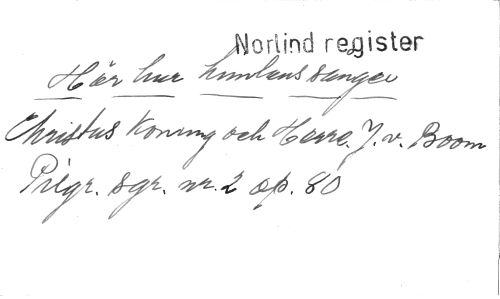 Norlind register
Hör hur himlens sånger
Christus Konung och Herre. J. v. Boom
Pilgr. sgr. nr. 2 op. 80